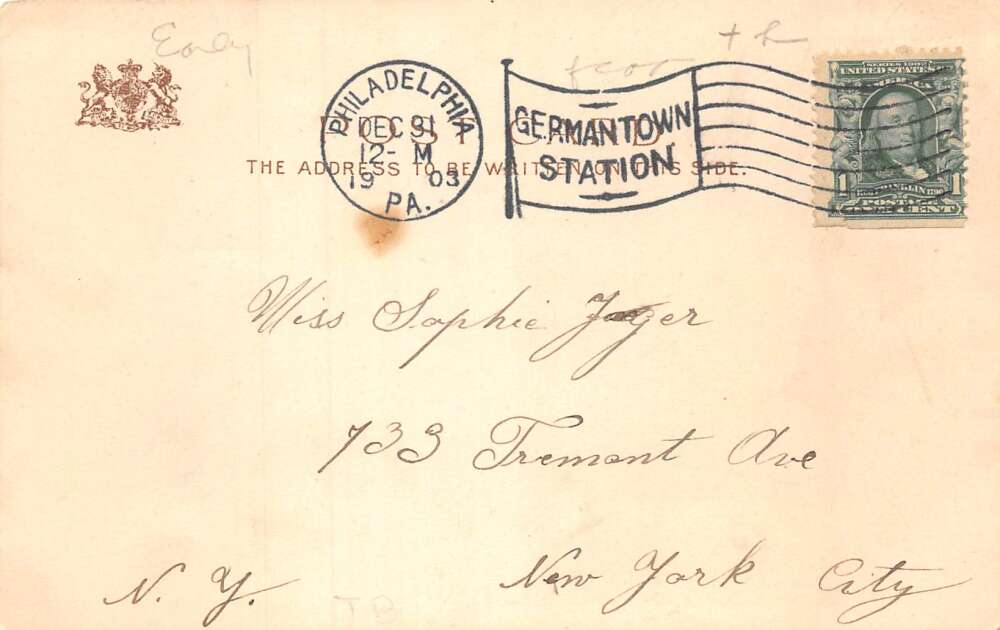 Early
PHILADELPHIA
DEC 31
12- M
19 03
PA.
GERMANTOWN
STATION
SERIES 1902
UNITED STATES OF
AMERICA
FRANKLIN
1 POSTAGE 1
ONE CENT
POST CARD
THE ADDRESS TO BE WRITTEN ON THIS SIDE.
Miss Sophie Jager
733 Tremont Ave
New York City
N. Y.